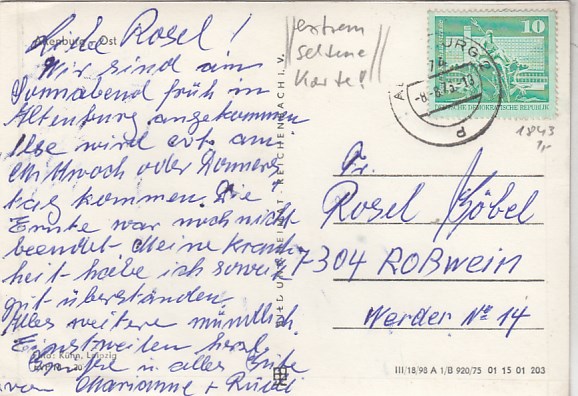 Altenburg - Ost
Liebe Rosel!
Wir sind am
Sonnabend früh in
Altenburg angekommen
Ilse wird evt. am
Mittwoch oder Donners
tag kommen. Die
Ernte war noch nicht
beendet. Meine Krank
heit habe ich soweit
gut überstanden.
Alles weitere mündlich.
Einstweilen herzl.
Grüße u. alles Gute
von Marianne + Rudi
Foto: Kühn, Leipzig
extrem
seltene
Karte!
BILD UND HEIMAT REICHENBACH I. V.
10
DEUTSCHE DEMOKRATISCHE REPUBLIK
ALTENBURG 2
74
-8.-8.75.-13
d
1843
Fr.
Rosel Göbel
7304 Roßwein
Werder No 14
III/18/98 A 1/B 920/75 01 15 01 203